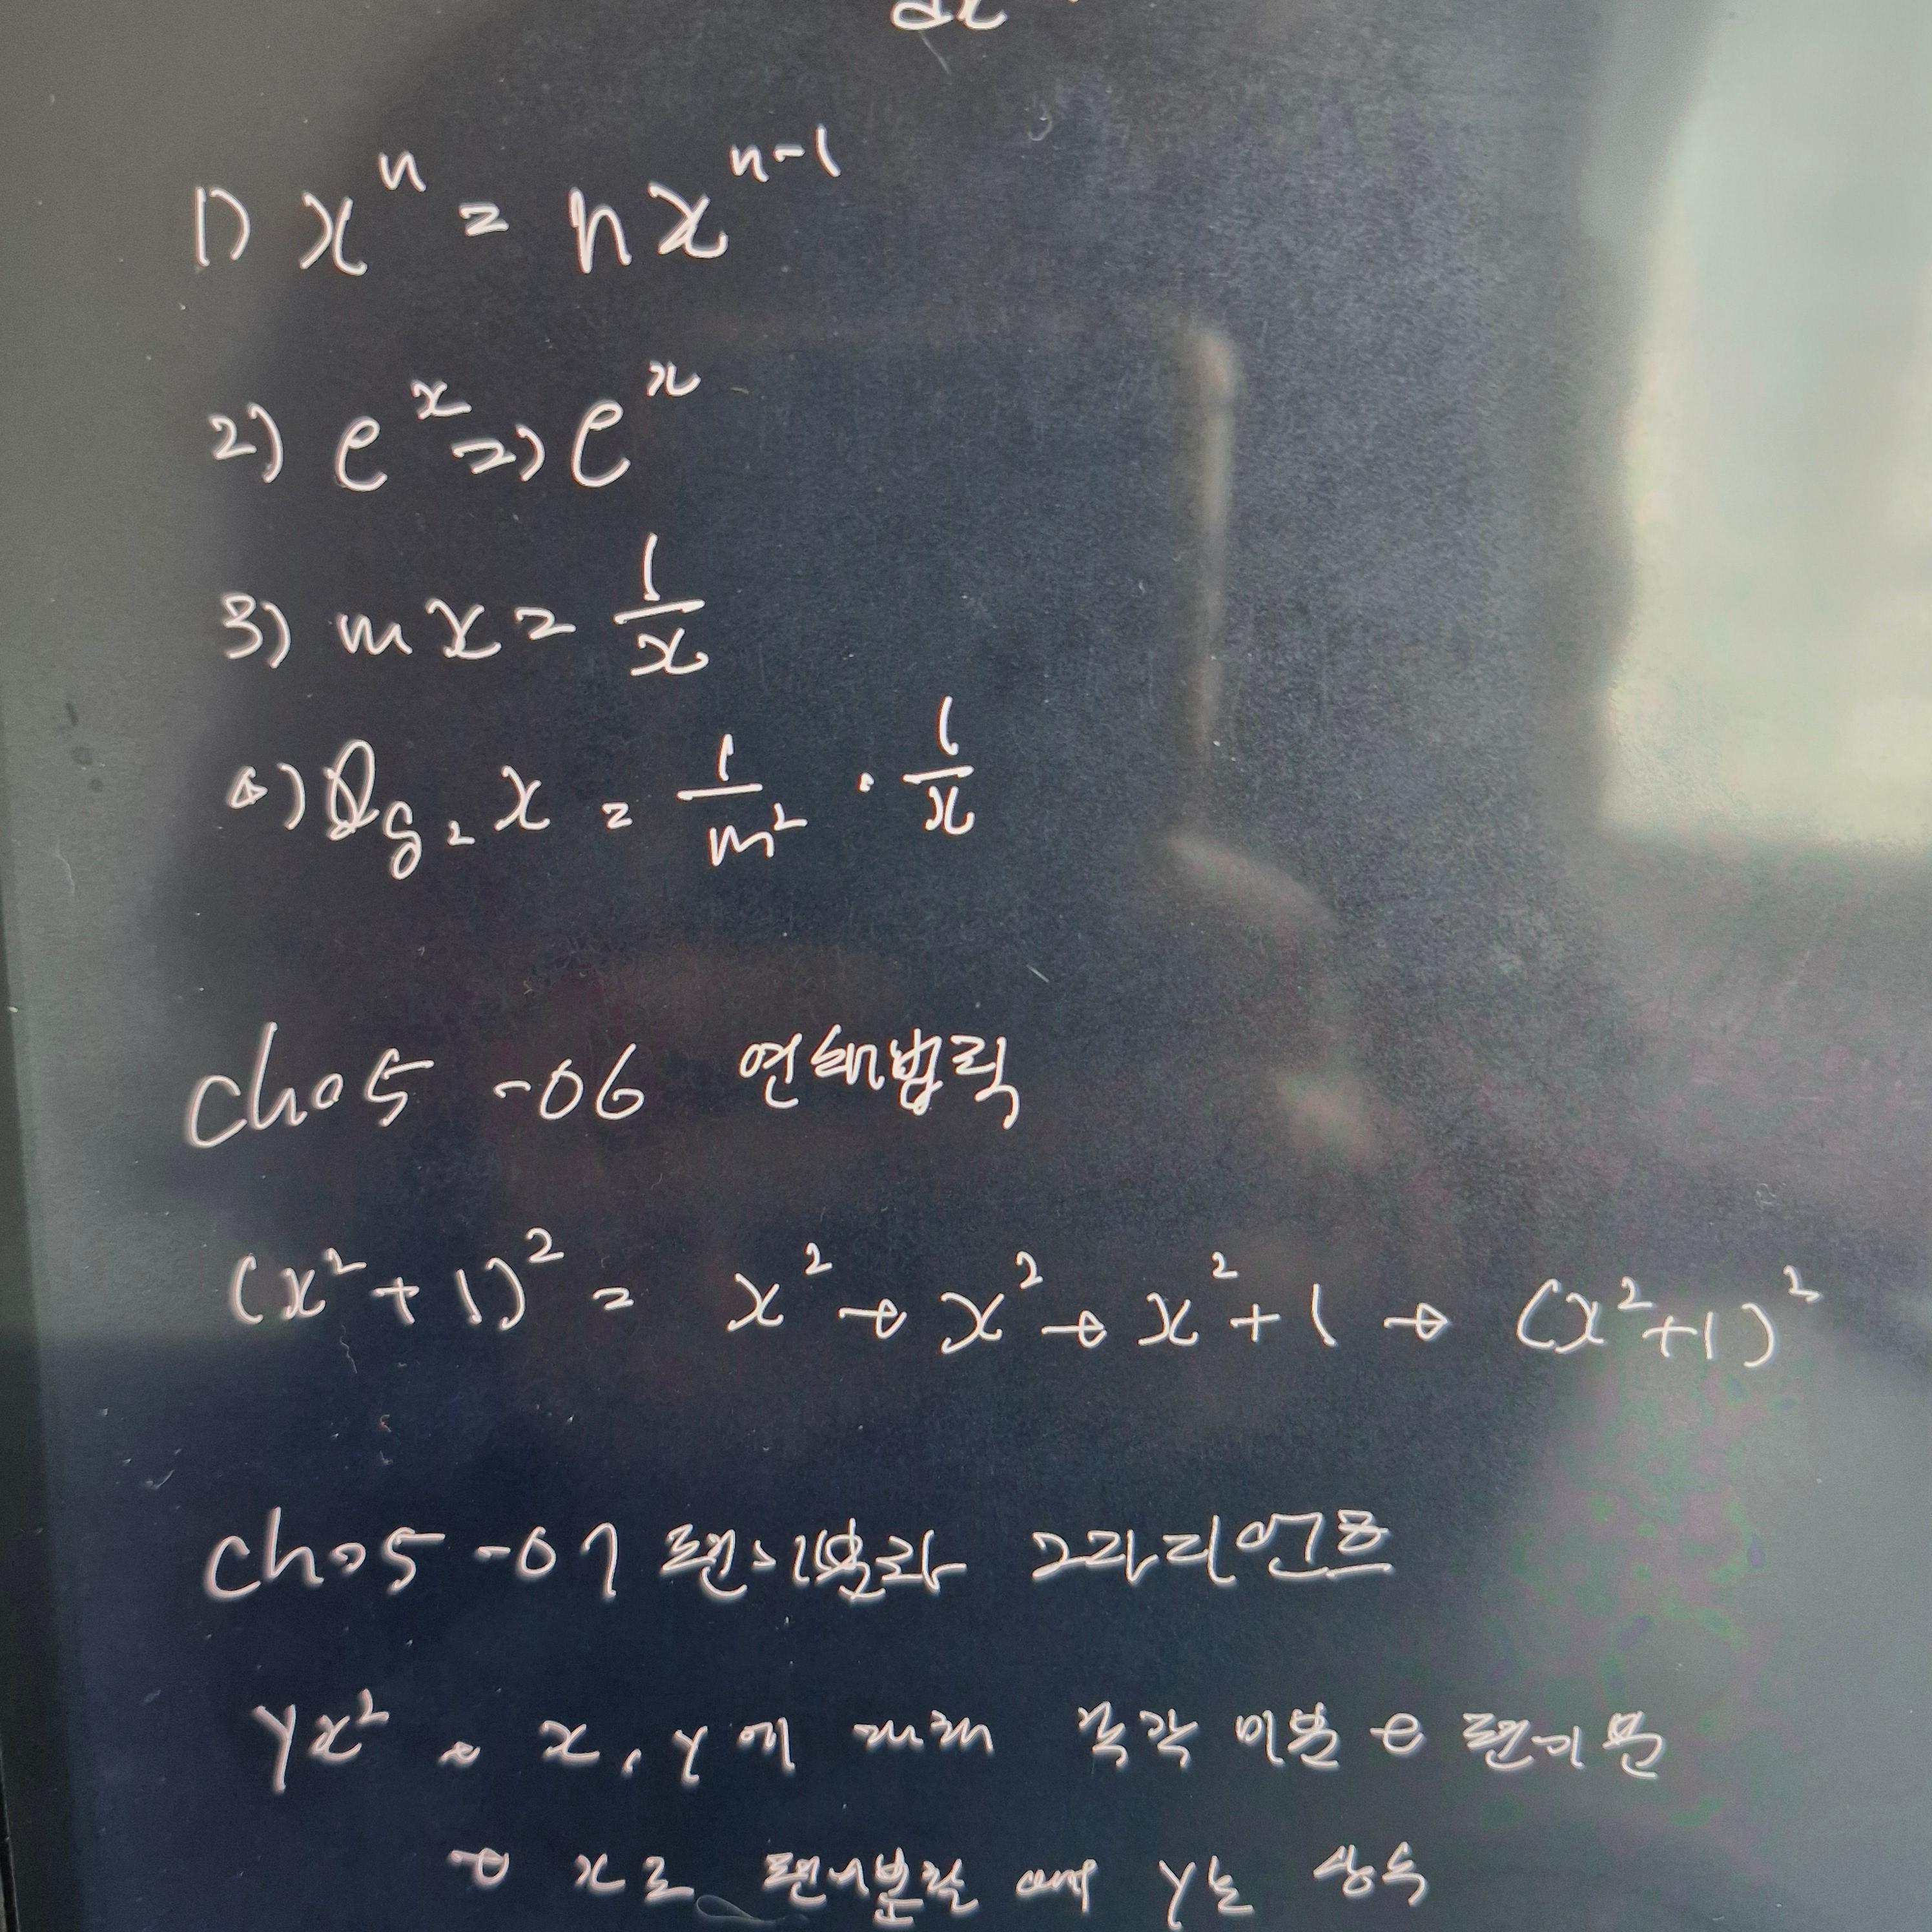 dx
1) x^n = nx^{n-1}
2) e^x => e^x
3) ln x = 1/x
4) log_2 x = 1/ln2 · 1/x
ch05 -06 연쇄법칙
(x²+1)² = x² → x² → x²+1 → (x²+1)²
ch05 -07 편미분과 그라디언트
yx² → x, y에 대해 각각 미분 → 편미분
→ x로 편미분할 때 y는 상수